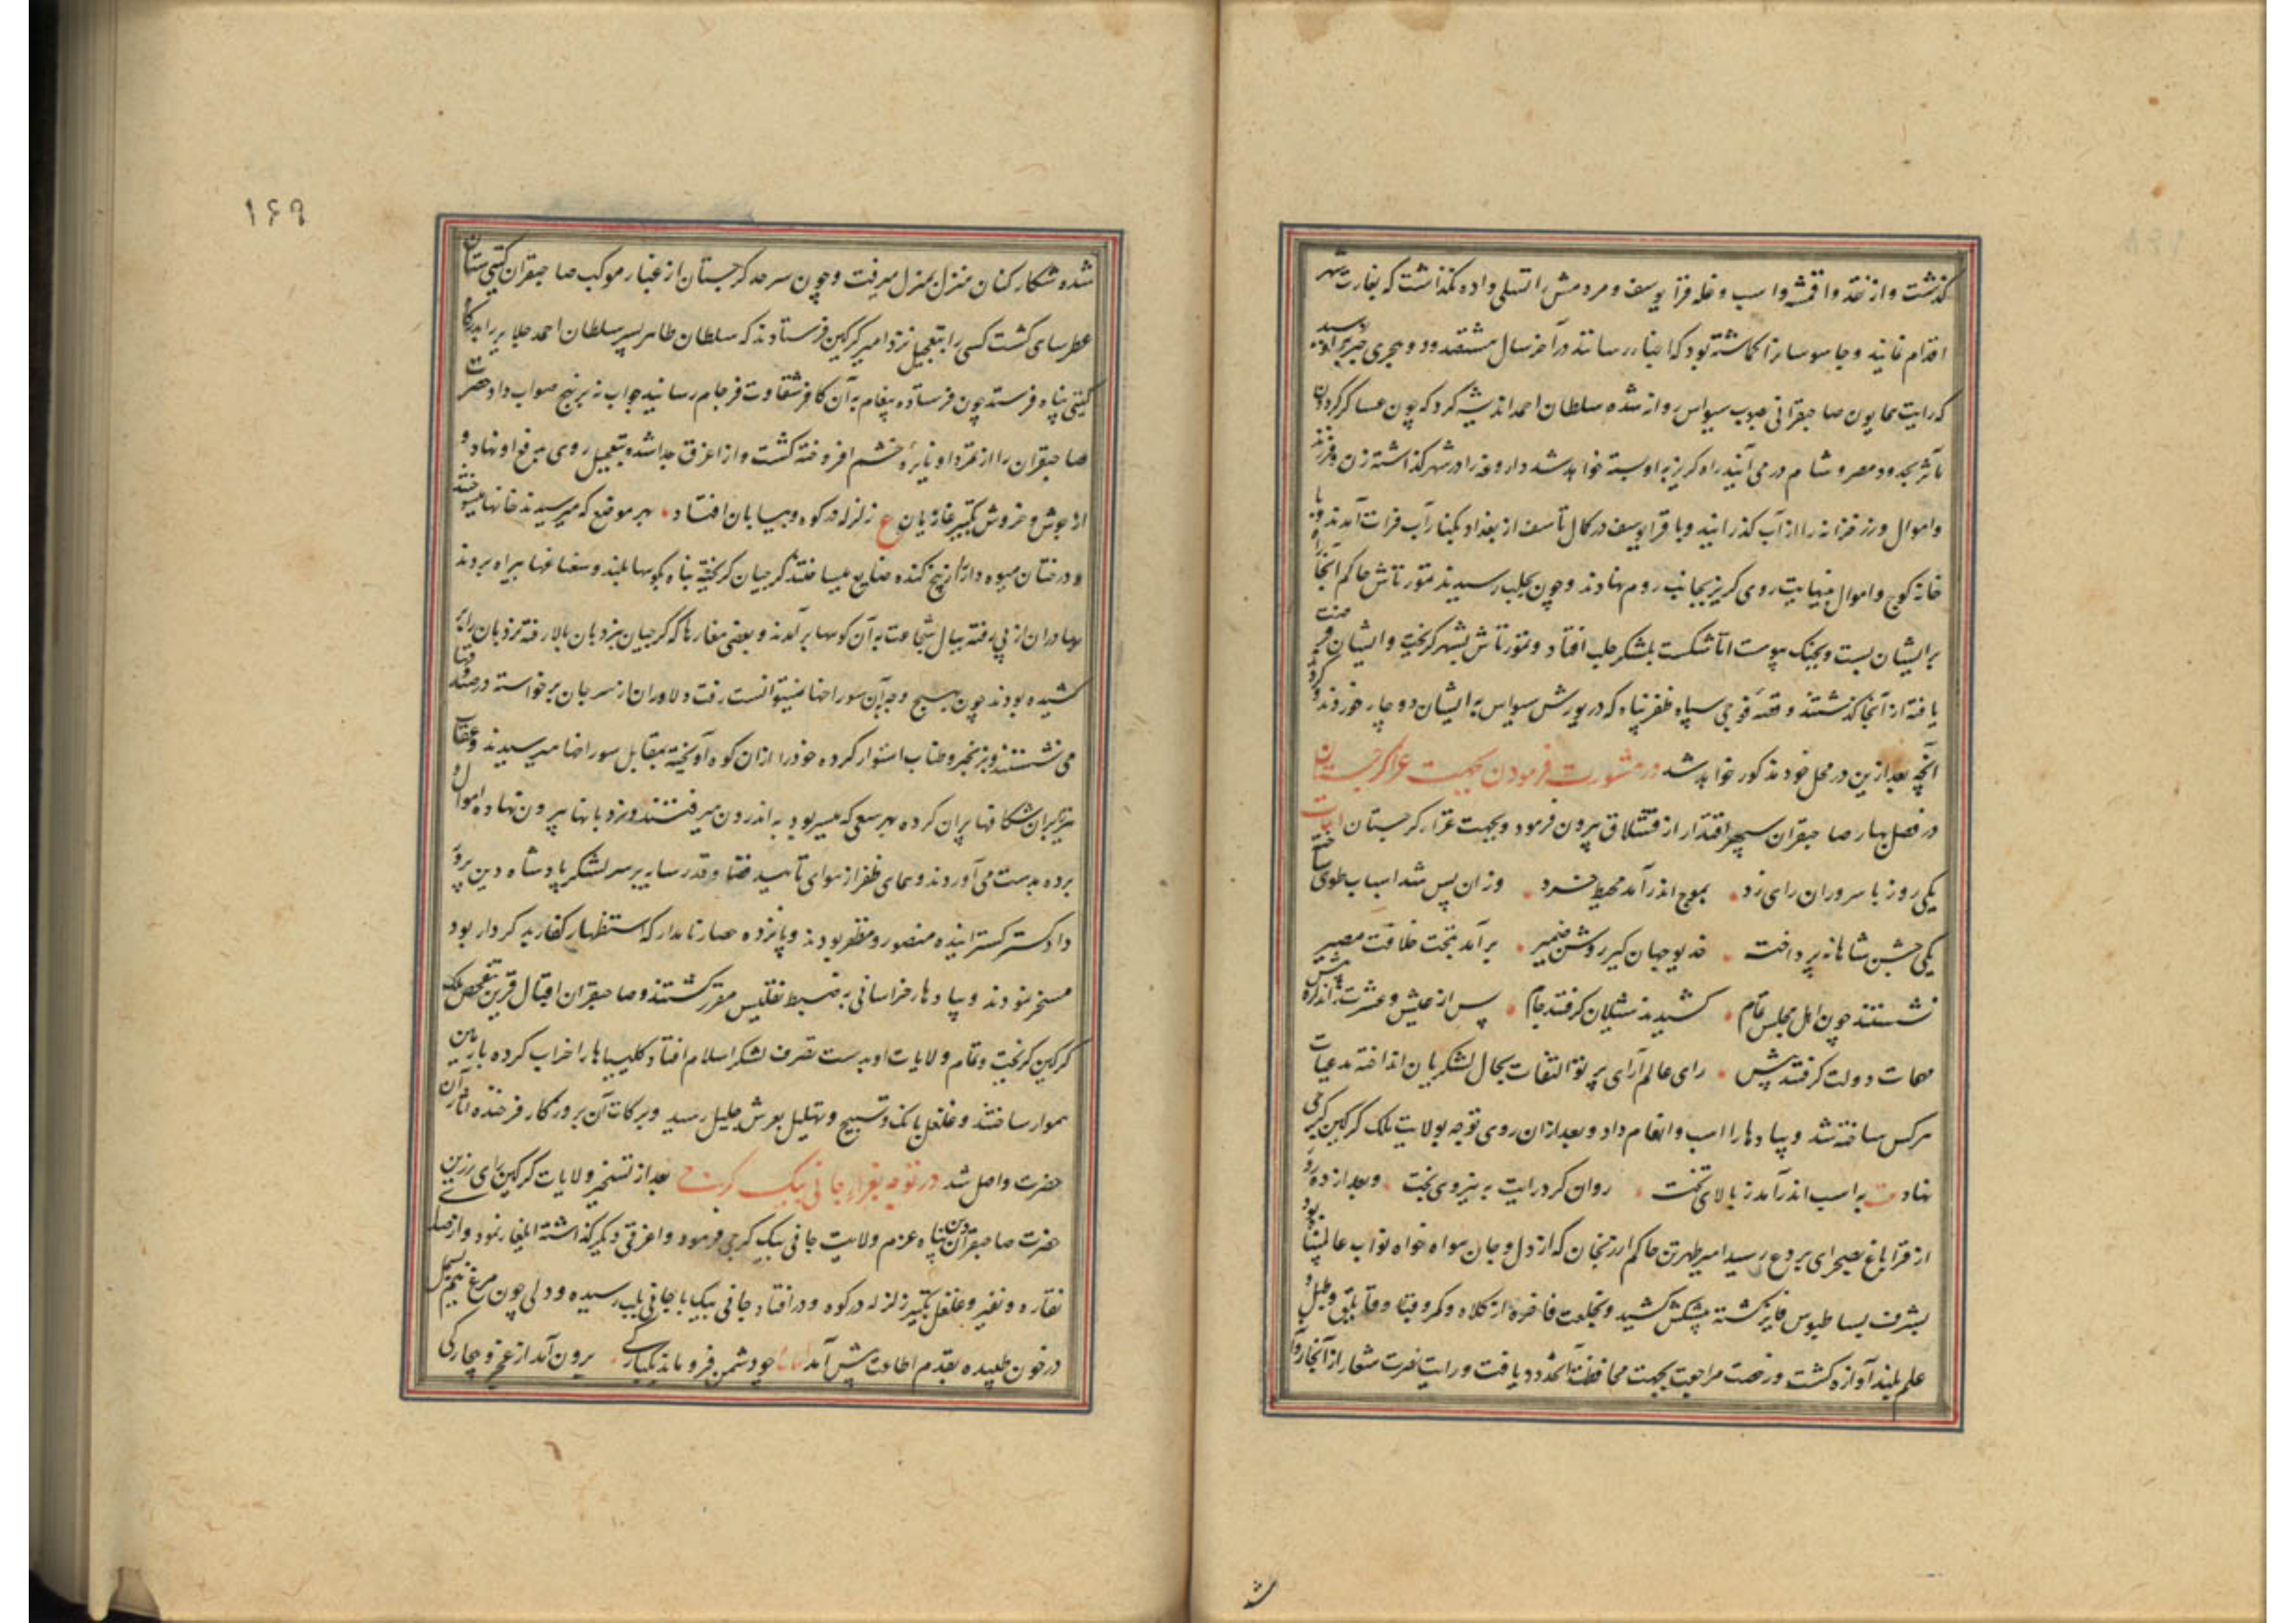 گذشت و از نقد و اقمشه و اسب و غله قرا یوسف و مردمش را تسلی داده نگذاشت که بغارت شهر
اقدام نمایند و جاسوسانرا گماشته بود که اخبار رسانند در آخر سال هشتصد و دو هجری خبر رسید
که رایت همایون صاحبقرانی بصوب سیواس روانه شده سلطان احمد اندیشه کرد که چون عساکر گردون
مآثر بحدود مصر و شام در می آیند راه گریز بر او بسته خواهد شد داروغه را در شهر گذاشته زن و فرزند
و اموال و زر خزانه را از آب گذرانید و با قرا یوسف در کمال تأسف از بغداد بکنار آب فرات آمدند و با
خانه کوچ و اموال بینهایت روی گریز بجانب روم نهادند و چون بحلب رسیدند تمورتاش حاکم آنجا راه
بر ایشان بست و بجنگ پیوست اما شکست بلشکر حلب افتاد و تمورتاش بشهر گریخت و ایشان فرصت
یافته از آنجا گذشتند و قصه فوجی سپاه ظفر پناه که در یورش سیواس به ایشان دوچار خوردند و کردند
آنچه بعد ازین در محل خود مذکور خواهد شد در مشورت فرمودن بجهت غزا گرجستان
در فصل بهار صاحبقران سپهر اقتدار از قشلاق بیرون فرمود و بجهت غزا گرجستان ابیات
یکی روز با سروران رای زد بموج اندر آمد محیط خرد وزان پس شد اسباب طوی ساخته
یکی جشن شاهانه پرداخته خدیو جهان گیر روشن ضمیر برآمد بتخت خلافت مصیر
نشستند چون اهل مجلس تمام کشیدند شیلان گرفتند جام پس از عیش و عشرت ز اندازه بیش
مهمات دولت گرفتند پیش رای عالم آرای پرتو التفات بحال لشکریان انداخته مدعیات
هرکس ساخته شد و پیادها را اسب و انعام داد و بعد ازان روی توجه بولایت ملک گرگین گرجی
نهاد به اسب اندر آمد ز بالای تخت روان کرد رایت به نیروی بخت و بعد از ده روز
از قراباغ بصحرای بردع رسید امیر طهرتن حاکم ارزنجان که از دل و جان هواه خواه نواب عالیشان بود
بشرف بساط بوس فایز گشته پیشکش کشید و بخلعت فاخره از کلاه و کمر و قبا و طبل و
علم بلند آوازه گشت و رخصت مراجعت بجهت محافظت آنحدود یافت و رایت نصرت شعار از آنجا روان
ش
۱۶۹
شده شکار کنان منزل بمنزل میرفت و چون سرحد گرجستان از غبار موکب صاحبقران گیتی ستان
عطرسای گشت کسی را بتعجیل نزد امیر گرگین فرستادند که سلطان طاهر پسر سلطان احمد جلایر را بدرگاه
گیتی پناه فرستد چون فرستاده پیغام به آن کافر شقاوت فرجام رسانید جواب نه بر نهج صواب داد حضرت
صاحبقران را از تمرد او نایرهٔ خشم افروخته گشت و از اغرق جدا شده بتعجیل روی بدفع او نهاد و
از جوش و خروش تکبیر غازیان ع زلزله در کوه و بیابان افتاد بهر موضع که میرسیدند خانها میسوختند
و درختان میوه دار را از بیخ کنده ضایع میساختند گرجیان گریخته پناه بکوهها بلند و سغناغها براه بردند
بهادران از پی رفته ببال شجاعت به آن کوهها برآمدند و بعضی مغارها که گرجیان بنردبان بالا رفته نردبان را بر
کشیده بودند چون بهیچ وجه بآن سوراخها نمیتوانست رفت دلاوران از سر جان برخواسته در صندوقها
می نشستند و بزنجیر و طناب استوار کرده خود را ازان کوه آویخته بمقابل سوراخها میرسیدند و عقاب
تیر بران شکافها پران کرده بهر سعی که میسر بود به اندرون میرفتند و نردبانها بیرون نهاده اموال و
برده بدست می آوردند و همای ظفر از هوای تأیید قضا و قدر سایه بر سر لشکر پادشاه دین پرور
دادگستر گستراینده منصور و مظفر بودند و پانزده حصار نامدار که استظهار کفار بد کردار بود
مسخر نمودند و پیادهار خراسانی به ضبط تفلیس مقرر گشتند و صاحبقران اقبال قرین تفحص ملک
گرگین گریخت و تمام ولایات او بدست تصرف لشکر اسلام افتاد کلیسیاها را خراب کرده با زمین
هموار ساختند و غلغل بانگ و تسبیح و تهلیل بعرش جلیل رسید و برکات آن بروزگار فرخنده آثار آن
حضرت واصل شد در توجه بغزاء جانی بیک گرجی بعد از تسخیر ولایات گرگین رای رزین
حضرت صاحبقران دین پناه عزم ولایت جانی بیک گرجی فرمود و اغرق دیگر گذاشته ایلغار نمود و از صدای
نقاره و نفیر و غلغل تکبیر زلزله در کوه و در افتاد جانی بیک با جانی بلب رسیده و دلی چون مرغ نیم بسمل
در خون طپیده بقدم اطاعت پیش آمد چو دشمن فروماند یکبارگی برون آمد از عجز و بیچارگی